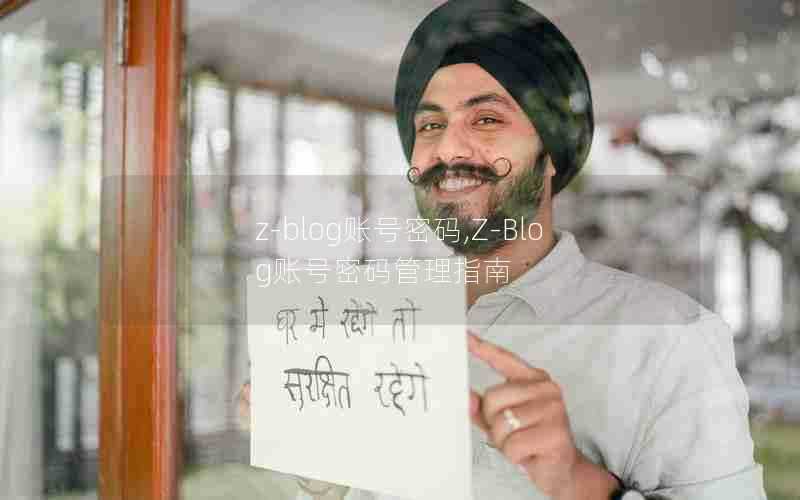 z-blog账号密码,Z-Blo
g账号密码管理指南
घर मे रहेंगे तो
सुरक्षित रहेगे